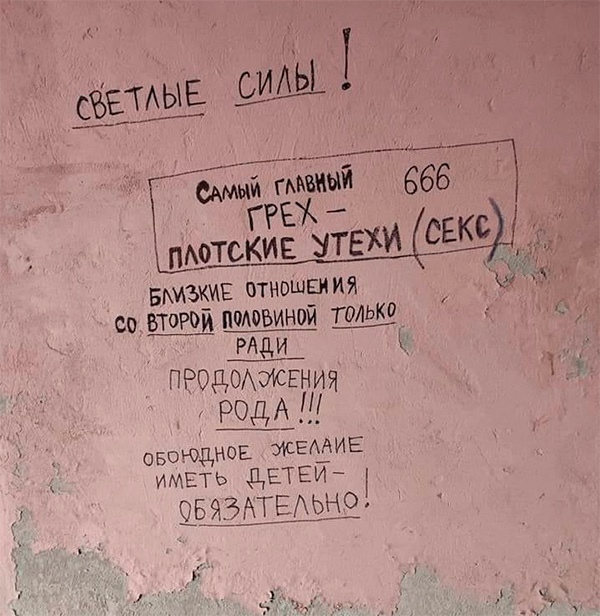 СВЕТЛЫЕ СИЛЫ!
САМЫЙ ГЛАВНЫЙ 666
ГРЕХ –
ПЛОТСКИЕ УТЕХИ (СЕКС)
БЛИЗКИЕ ОТНОШЕНИЯ
СО ВТОРОЙ ПОЛОВИНОЙ ТОЛЬКО
РАДИ
ПРОДОЛЖЕНИЯ
РОДА!!!
ОБОЮДНОЕ ЖЕЛАИЕ
ИМЕТЬ ДЕТЕЙ –
ОБЯЗАТЕЛЬНО!